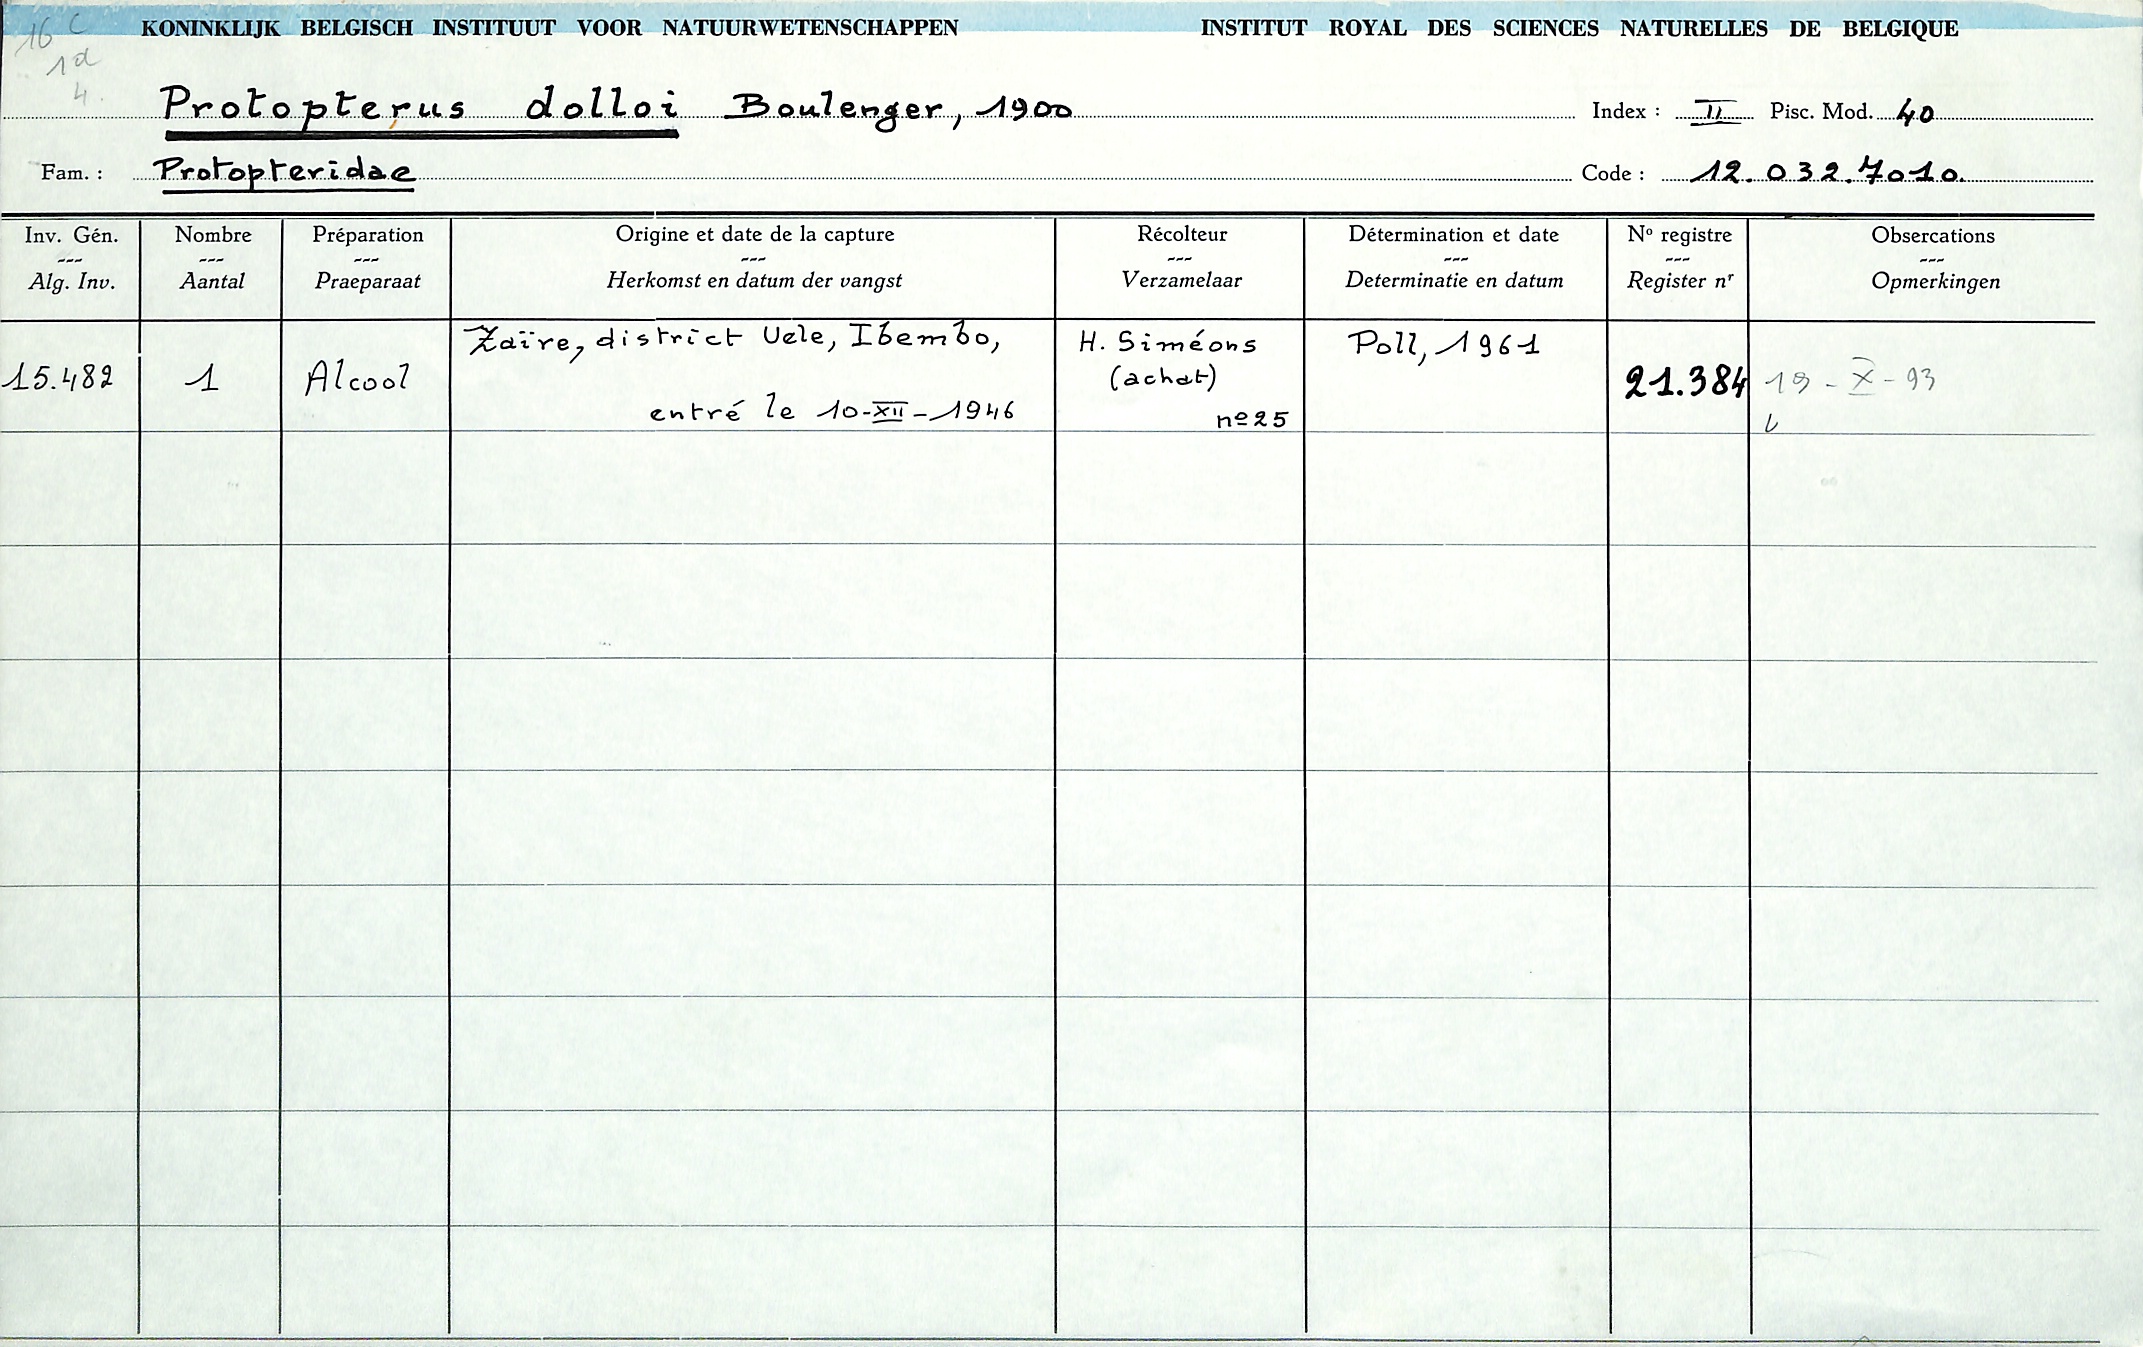 16 C
1d
4.
KONINKLIJK BELGISCH INSTITUUT VOOR NATUURWETENSCHAPPEN INSTITUT ROYAL DES SCIENCES NATURELLES DE BELGIQUE
Protopterus dolloi Boulenger, 1900 Index : II Pisc. Mod. 40
Fam. : Protopteridae Code : 12.032.7010.
Inv. Gén. Nombre Préparation Origine et date de la capture Récolteur Détermination et date Nº registre Obsercations
--- --- --- --- --- --- --- ---
Alg. Inv. Aantal Praeparaat Herkomst en datum der vangst Verzamelaar Determinatie en datum Register nʳ Opmerkingen
Zaïre, district Uele, Ibembo, H. Siméons Poll, 1961
15.482 1 Alcool (achat) 21.384 19-X-93
entré le 10-XII-1946 nº25